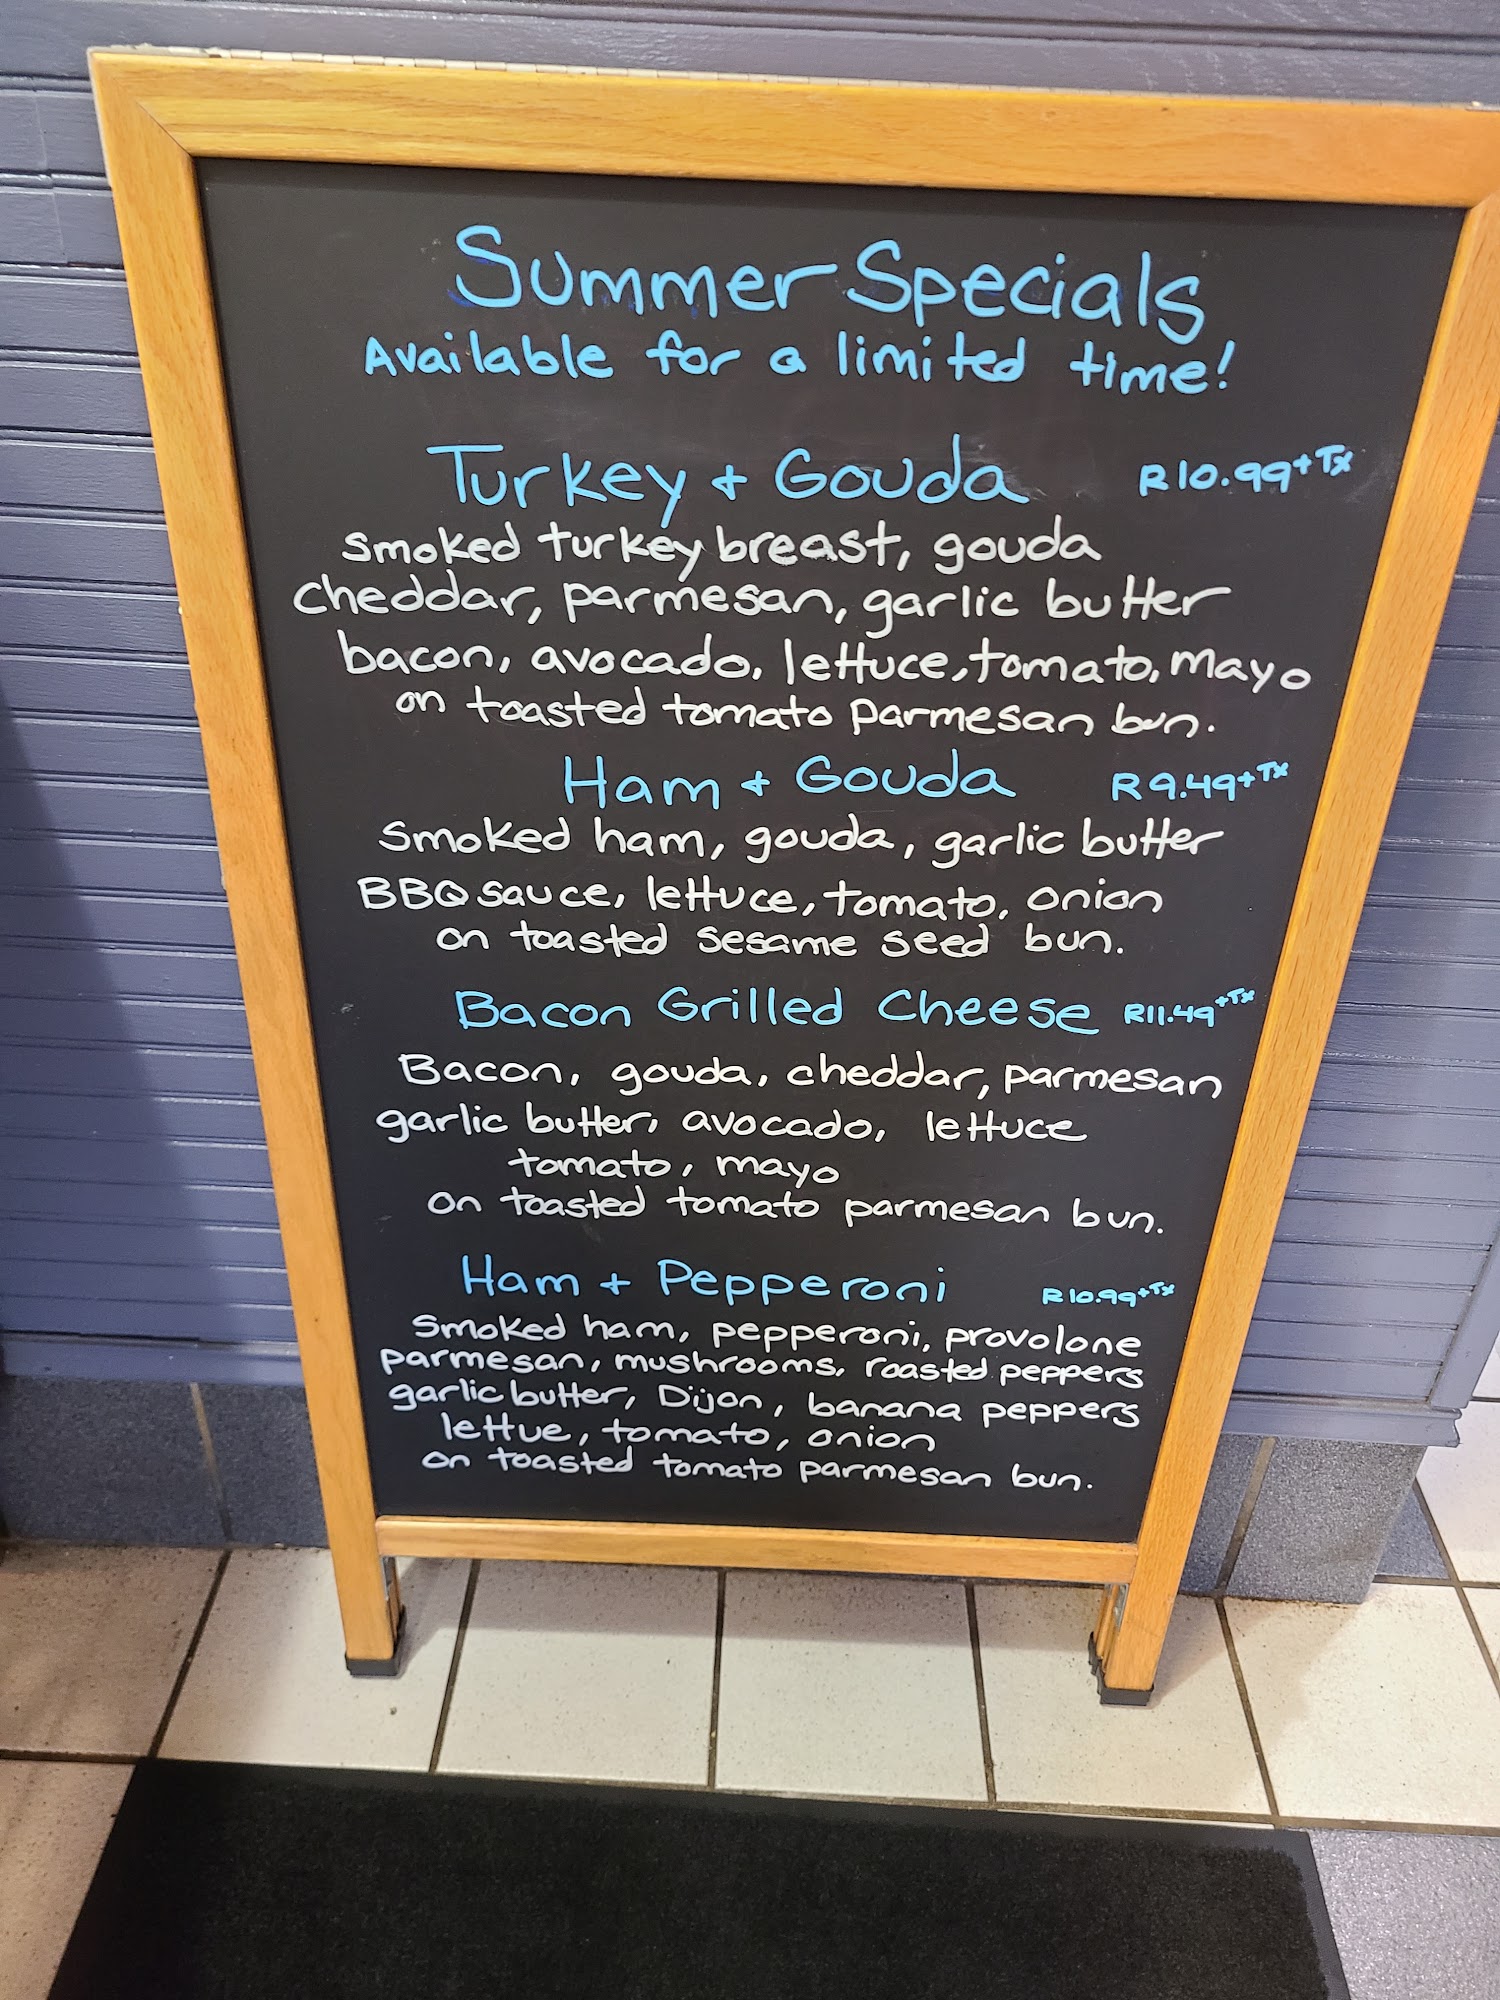 Summer Specials
Available for a limited time!
Turkey + Gouda R10.99+Tx
smoked turkey breast, gouda
cheddar, parmesan, garlic butter
bacon, avocado, lettuce, tomato, mayo
on toasted tomato parmesan bun.
Ham + Gouda R9.49+Tx
Smoked ham, gouda, garlic butter
BBQ sauce, lettuce, tomato, onion
on toasted sesame seed bun.
Bacon Grilled Cheese R11.49+Tx
Bacon, gouda, cheddar, parmesan
garlic butter, avocado, lettuce
tomato, mayo
on toasted tomato parmesan bun.
Ham + Pepperoni R10.99+Tx
Smoked ham, pepperoni, provolone
parmesan, mushrooms, roasted peppers
garlic butter, Dijon, banana peppers
lettue, tomato, onion
on toasted tomato parmesan bun.